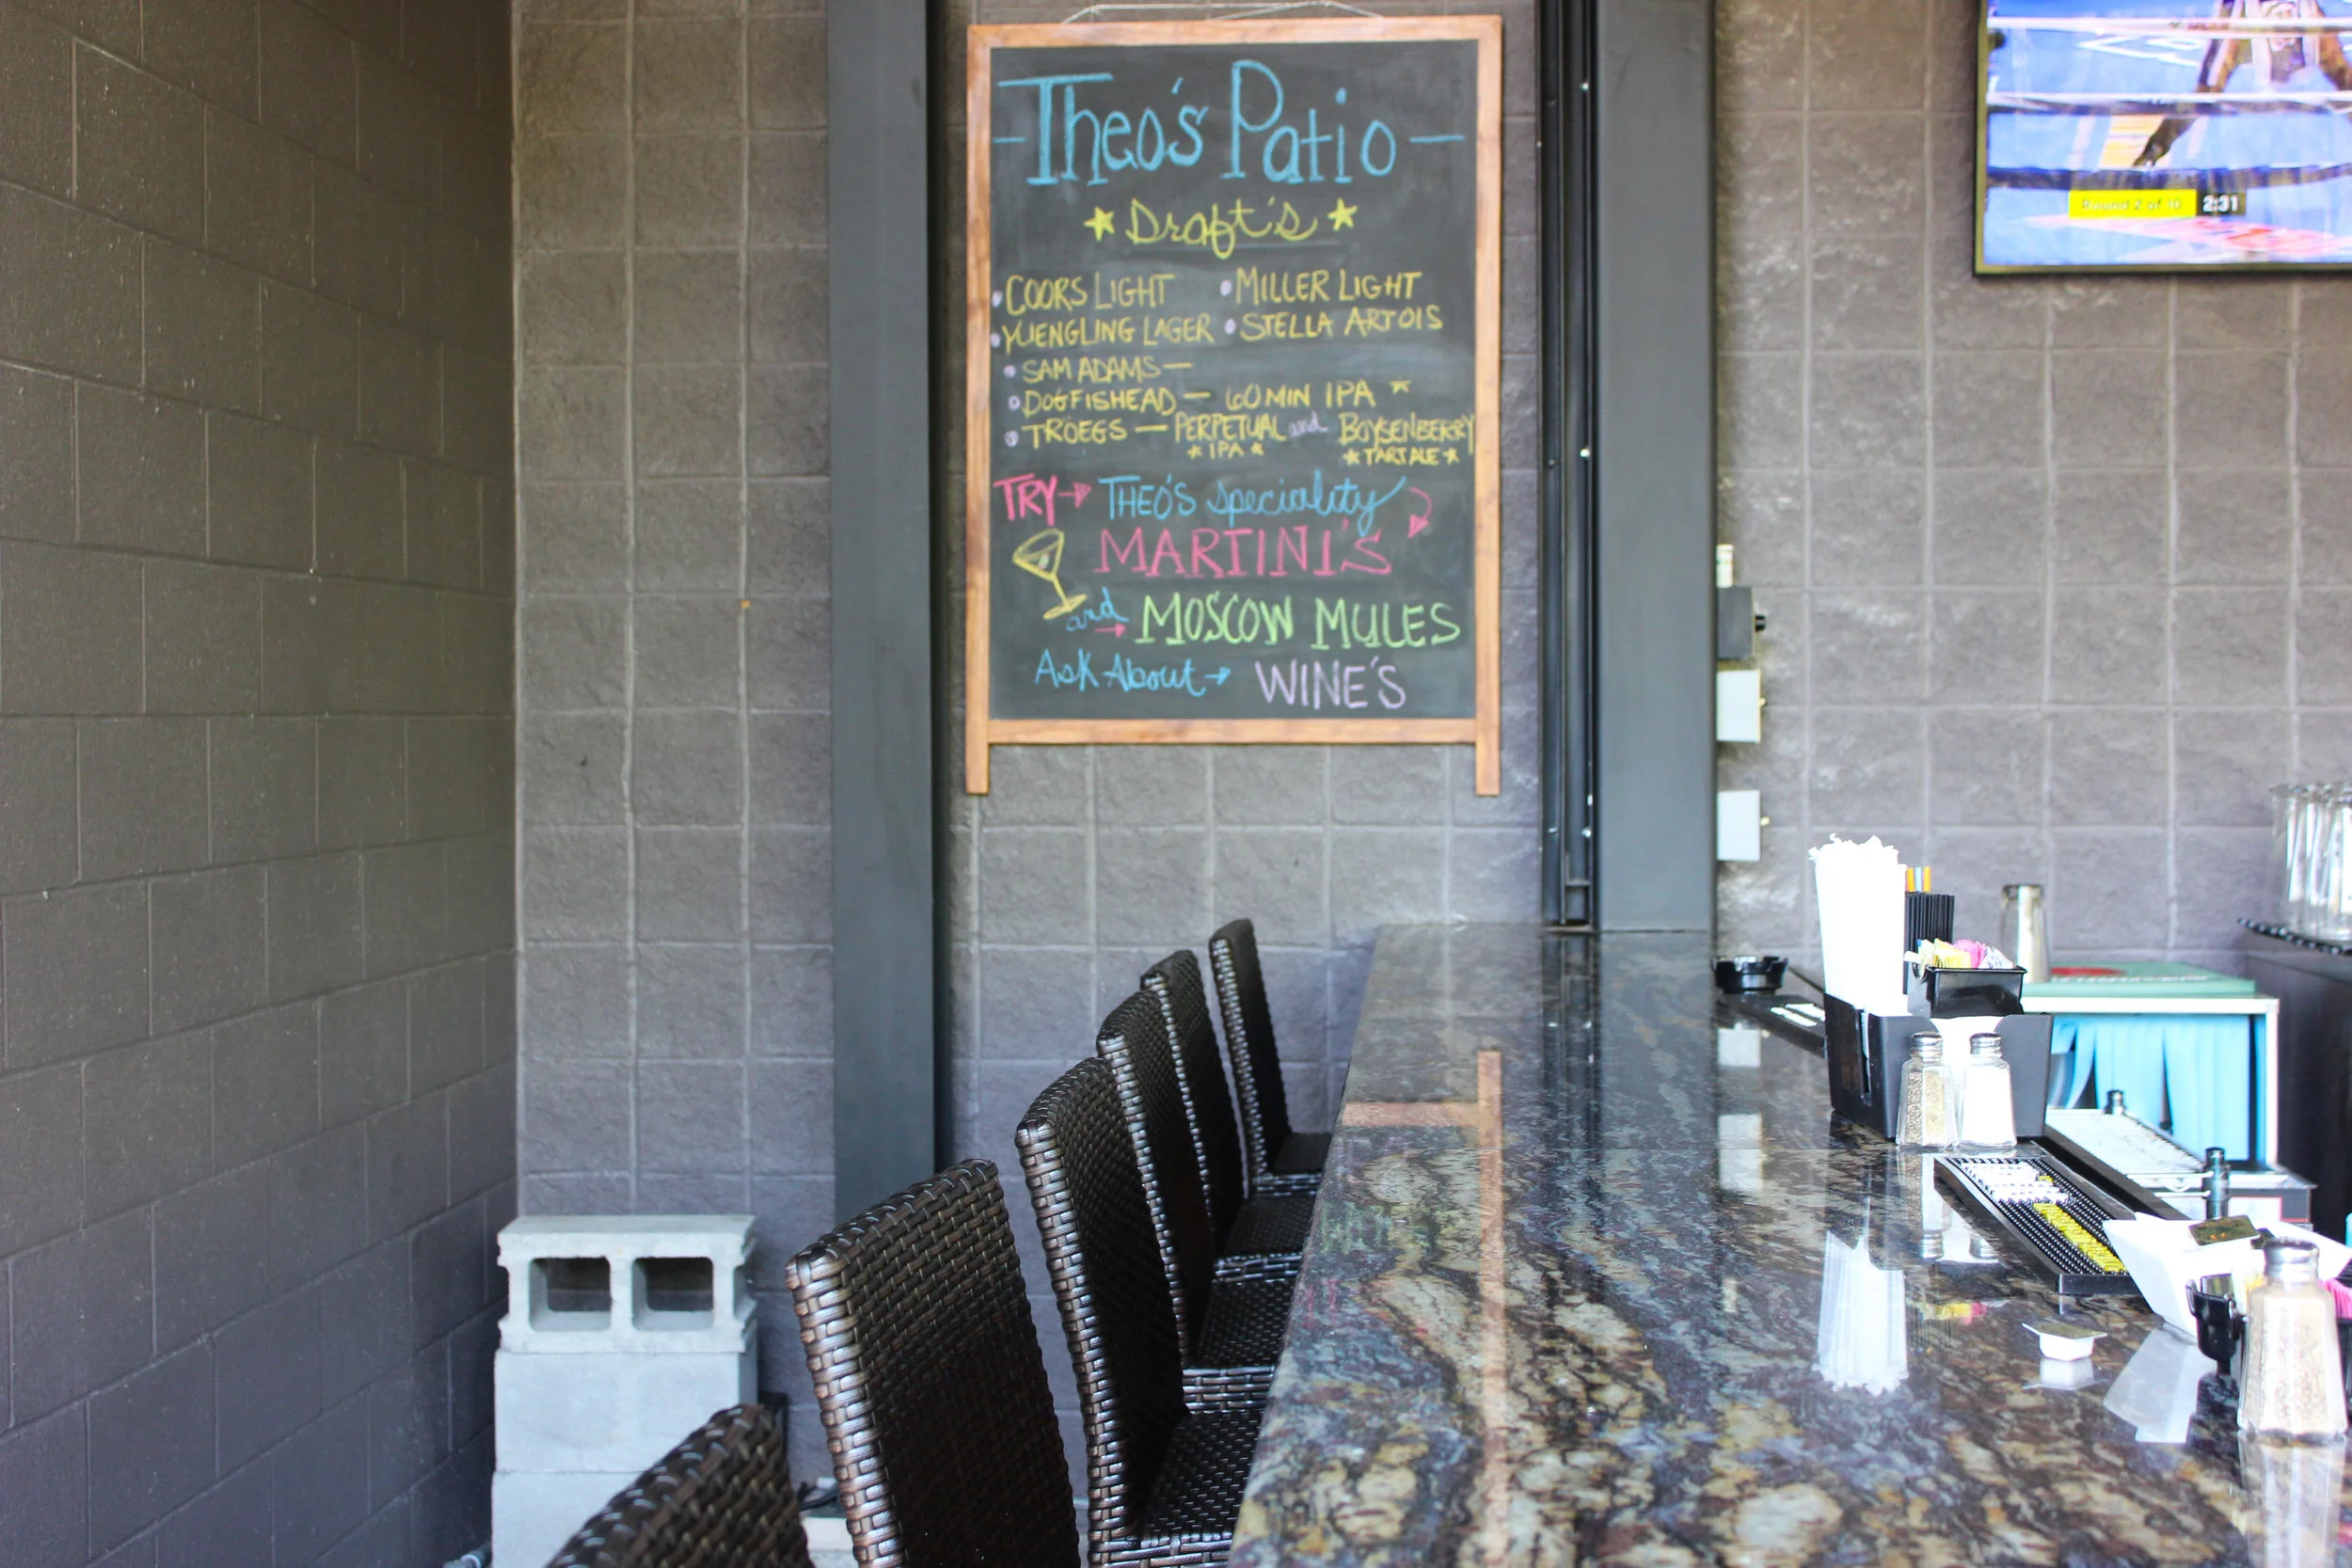 -Theo's Patio-
★ Draft's ★
• COORS LIGHT • MILLER LIGHT
• YUENGLING LAGER • STELLA ARTOIS
• SAM ADAMS —
• DOGFISHEAD — 60 MIN IPA ★
• TRÖEGS — PERPETUAL and BOYSENBERRY
★ IPA ★ ★ TART ALE ★
TRY → THEO'S speciality
MARTINI'S
and → MOSCOW MULES
Ask About → WINE'S
Round 2 of 10 2:31